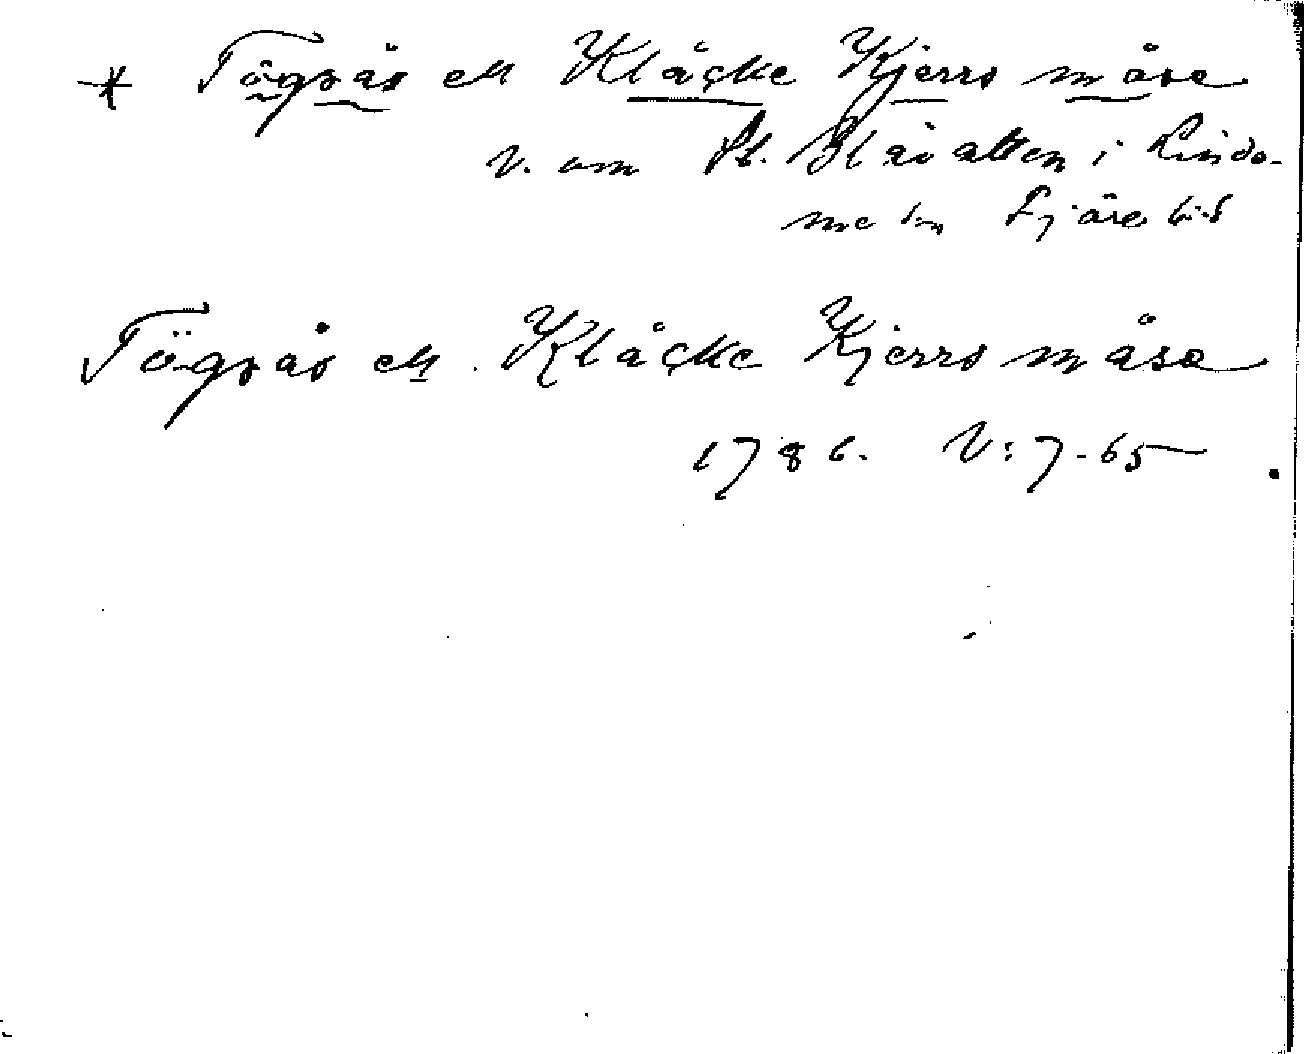 * Tögsås ell Klåcke Kjerrs måse
v. om St. Blåvatten i Lindo-
me sn Fjäre hd
Tögsås ell. Klåcke Kjerrs måse
1786. V:7-65